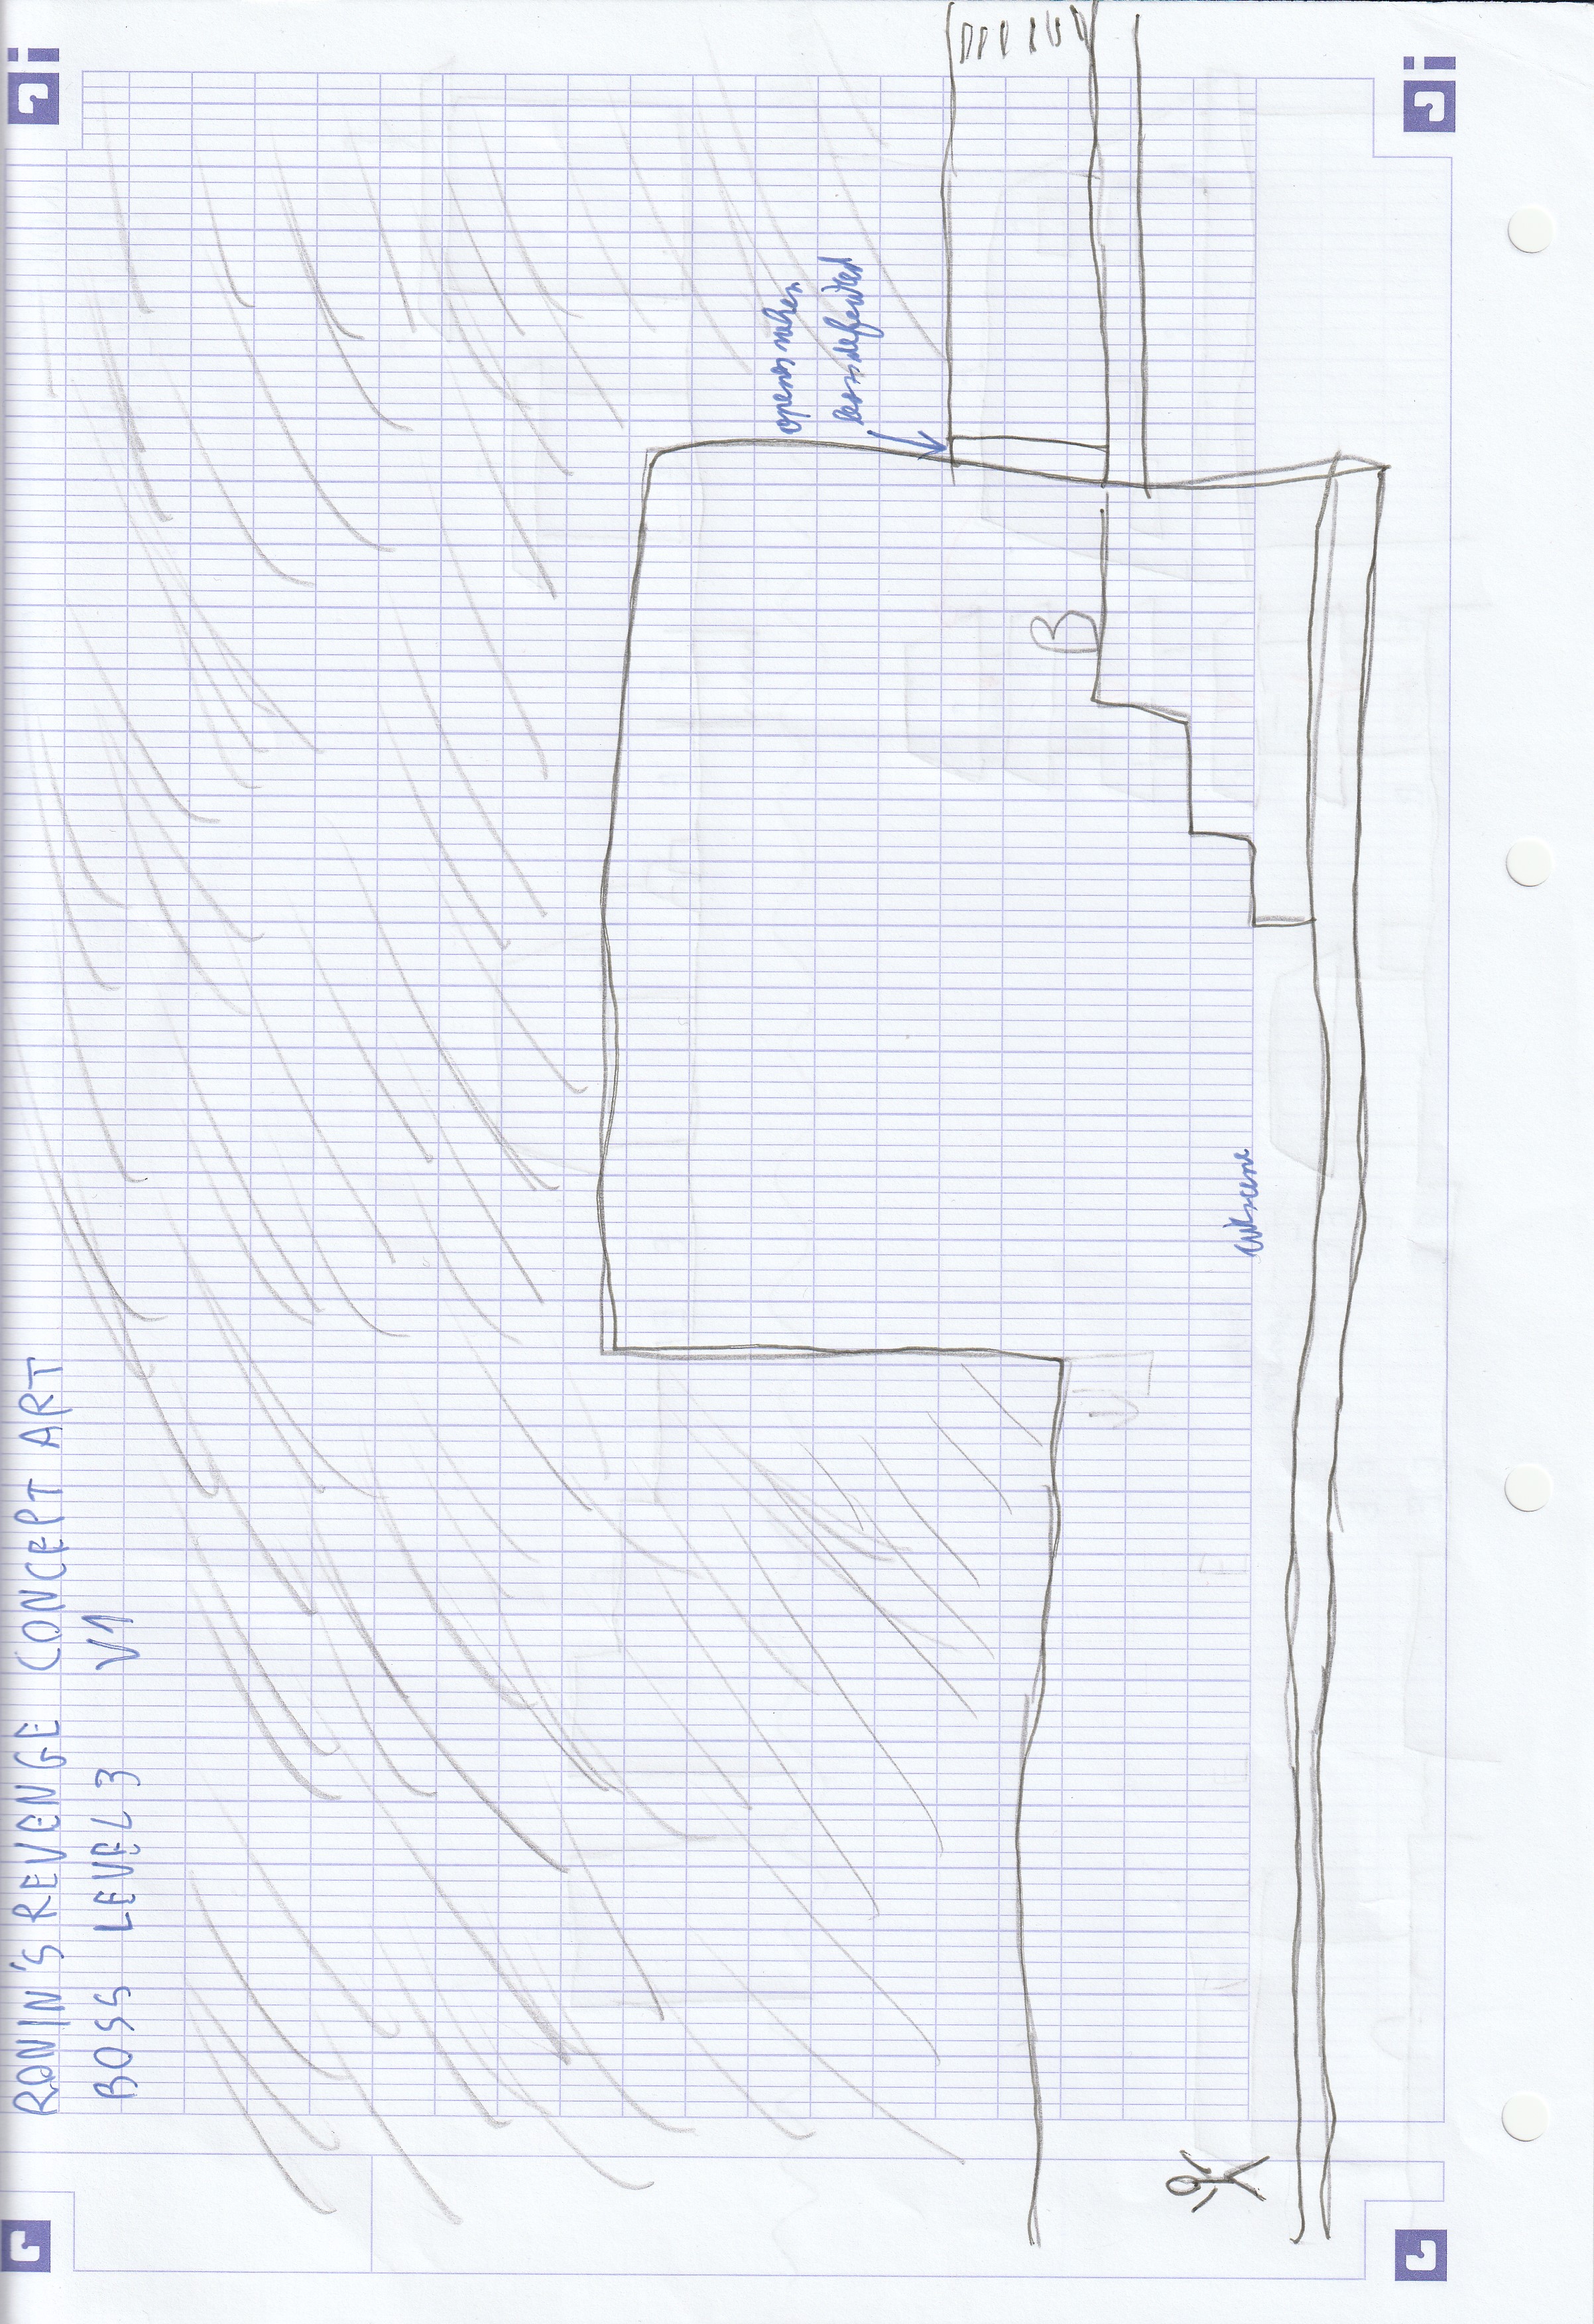 RONIN'S REVENGE CONCEPT ART
BOSS LEVEL 3 V1
opens when
boss defeated
B
cutscene